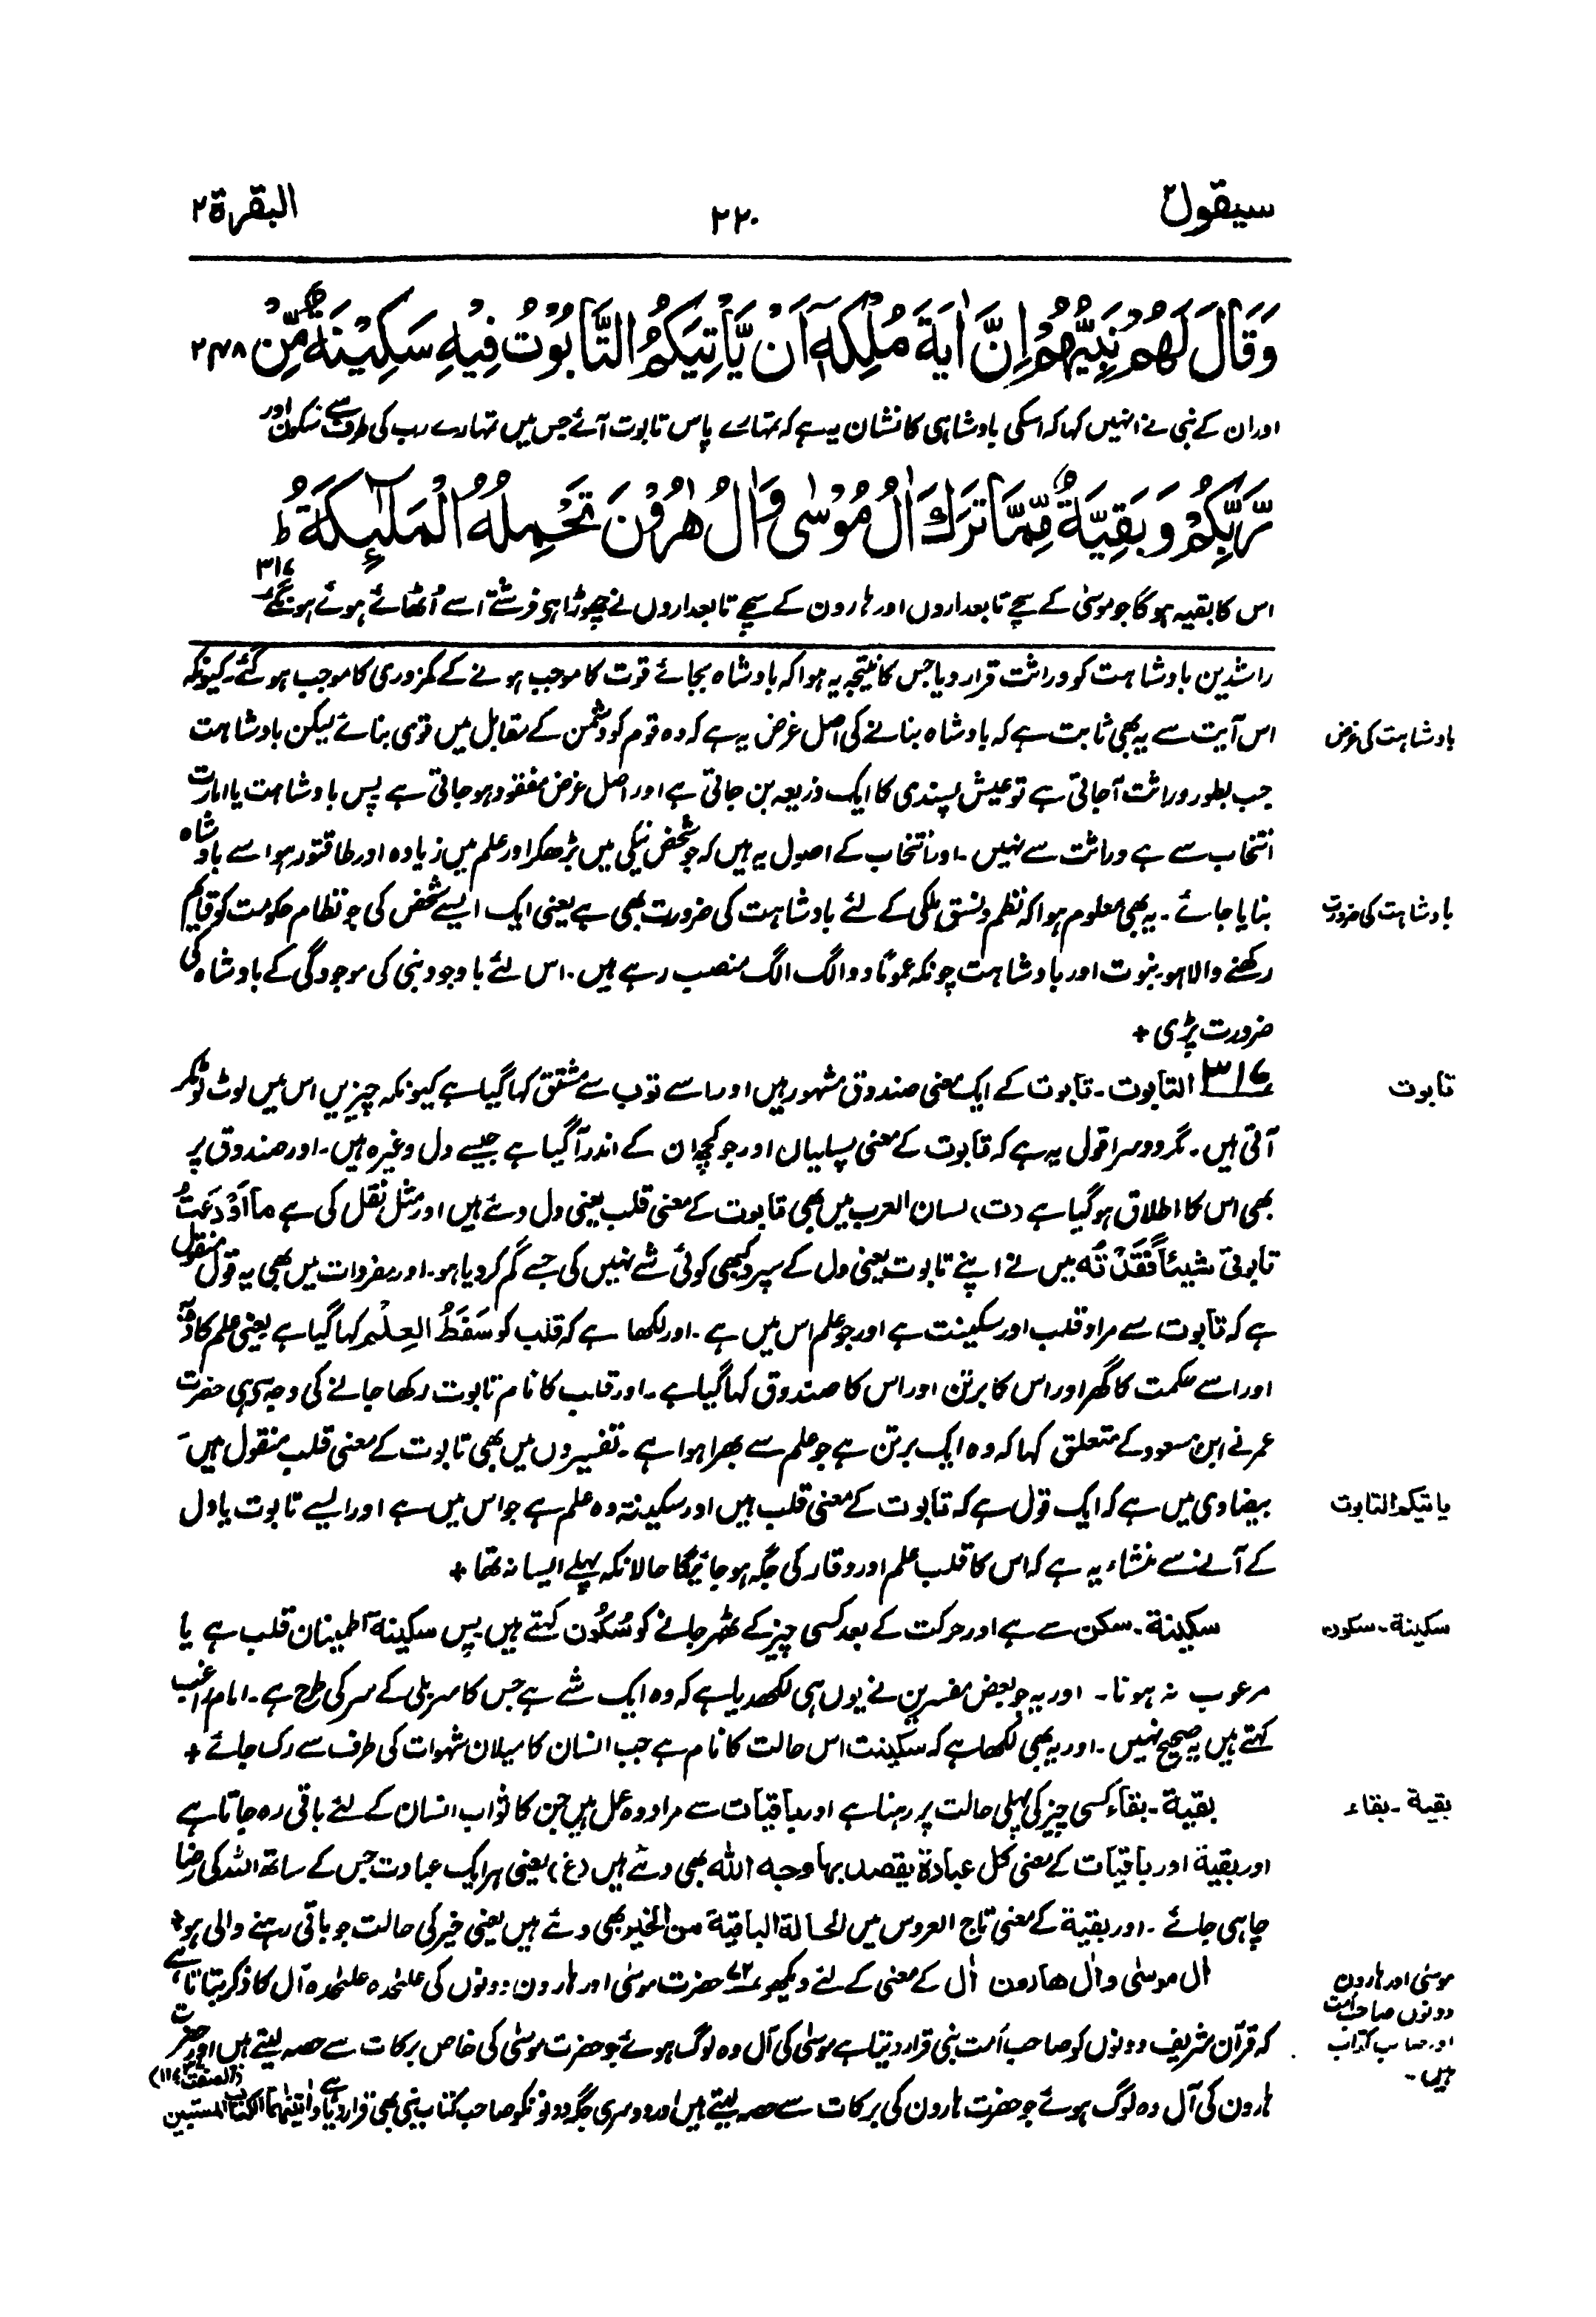 سیقول ۲
۲۲۰
البقرة ۲
وَقَالَ لَهُمْ نَبِيُّهُمْ اِنَّ اٰيَةَ مُلْكِهٖٓ اَنْ يَّاْتِيَكُمُ التَّابُوْتُ فِيْهِ سَكِيْنَةٌ مِّنْ ۲۴۸
اور ان کے نبی نے انہیں کہا کہ اسکی بادشاہی کا نشان یہ ہے کہ تمہارے پاس تابوت آئے جس میں تمہارے رب کی طرف سے سکون اور
رَّبِّكُمْ وَ بَقِيَّةٌ مِّمَّا تَرَكَ اٰلُ مُوْسٰى وَ اٰلُ هٰرُوْنَ تَحْمِلُهُ الْمَلٰٓئِكَةُ ؕ
اس کا بقیہ ہوگا جو موسیٰ کے سچے تابعداروں اور ہارون کے سچے تابعداروں نے چھوڑا ہی فرشتے اسے اُٹھائے ہوئے ہونگے ۳۱۶
راشدین بادشاہت کو وراثت قرار دیا جس کا نتیجہ یہ ہوا کہ بادشاہ بجائے قوت کا موجب ہونے کے کمزوری کا موجب ہو گئے۔ کیونکہ
بادشاہت کی غرض
اس آیت سے یہ بھی ثابت ہے کہ بادشاہ بنانے کی اصل غرض یہ ہے کہ وہ قوم کو دشمن کے مقابل میں قوی بنائے لیکن بادشاہت
جب بطور وراثت آجاتی ہے تو عیش پسندی کا ایک ذریعہ بن جاتی ہے اور اصل غرض مفقود ہو جاتی ہے پس بادشاہت یا امارت
انتخاب سے ہے وراثت سے نہیں۔ اور انتخاب کے اصول یہ ہیں کہ جو شخص نیکی میں بڑھکر اور علم میں زیادہ اور طاقتور ہو اسے بادشاہ
بادشاہت کی ضرورت
بنایا جائے۔ یہ بھی معلوم ہوا کہ نظم و نسق ملکی کے لئے بادشاہت کی ضرورت بھی ہے یعنی ایک ایسے شخص کی جو نظام حکومت کو قایم
رکھنے والا ہو۔ نبوت اور بادشاہت چونکہ عموماً دو الگ الگ منصب رہے ہیں۔ اس لئے باوجود نبی کی موجودگی کے بادشاہ کی
ضرورت پڑی +
تابوت
۳۱۶ التابوت۔ تابوت کے ایک معنی صندوق مشہور ہیں اور اسے توب سے مشتق کہا گیا ہے کیونکہ چیزیں اس میں لوٹ لوٹکر
آتی ہیں۔ مگر دوسرا قول یہ ہے کہ تابوت کے معنی پسلیاں اور جو کچھ ان کے اندر آگیا ہے جیسے دل وغیرہ ہیں۔ اور صندوق پر
بھی اس کا اطلاق ہو گیا ہے (ت) لسان العرب میں بھی تابوت کے معنی قلب یعنی دل دئے ہیں اور مثل نقل کی ہے ما اَوْدَعتُ
تابوتی شیئاً فَقَدْتُه میں نے اپنے تابوت یعنی دل کے سپرد کبھی کوئی شے نہیں کی جسے گم کر دیا ہو۔ اور مفردات میں بھی یہ قول منقول
ہے کہ تابوت سے مراد قلب اور سکینت ہے اور جو علم اس میں ہے۔ اور لکھا ہے کہ قلب کو سَفَطُ العِلْم کہا گیا ہے یعنی علم کا
اور اسے حکمت کا گھر اور اس کا برتن اور اس کا صندوق کہا گیا ہے۔ اور قلب کا نام تابوت رکھا جانے کی وجہ سے ہی حضرت
عمر نے ابن مسعود کے متعلق کہا کہ وہ ایک برتن ہے جو علم سے بھرا ہوا ہے۔ تفسیروں میں بھی تابوت کے معنی قلب منقول ہیں۔
یاتیکم التابوت
بیضاوی میں ہے کہ ایک قول ہے کہ تابوت کے معنی قلب ہیں اور سکینۃ وہ علم ہے جو اس میں ہے اور ایسے تابوت یا دل
کے آنے سے منشاء یہ ہے کہ اس کا قلب علم اور وقار کی جگہ ہو جائیگا حالانکہ پہلے ایسا نہ تھا +
سکینة۔ سکون
سکینة۔ سکن سے ہے اور حرکت کے بعد کسی چیز کے ٹھہر جانے کو سُکُون کہتے ہیں پس سکینة اطمینان قلب ہے یا
مرعوب نہ ہونا۔ اور یہ جو بعض مفسرین نے یوں ہی لکھدیا ہے کہ وہ ایک شے ہے جس کا سر بلی کے سر کی طرح ہے۔ امام راغب
کہتے ہیں یہ صحیح نہیں۔ اور یہ بھی لکھا ہے کہ سکینت اس حالت کا نام ہے جب انسان کا میلان شہوات کی طرف سے رک جائے +
بقیة۔ بقاء
بقیة۔ بقاء کسی چیز کی پہلی حالت پر رہنا ہے اور باقیات سے مراد وہ عمل ہیں جن کا ثواب انسان کے لئے باقی رہ جاتا ہے
اور بقیة اور باقیات کے معنی کل عبادة یقصد بہا وجه اللہ بھی دئے ہیں (غ) یعنی ہر ایک عبادت جس کے ساتھ اللہ کی رضا
چاہی جائے۔ اور بقیة کے معنی تاج العروس میں الحالة الباقیة من الخیر بھی دئے ہیں یعنی خیر کی حالت جو باقی رہنے والی ہو +
موسیٰ اور ہارون دونوں صاحب امت اور صاحب کتاب ہیں۔
اٰل موسیٰ و اٰل ھارون اٰل کے معنی کے لئے دیکھو ۷۲ حضرت موسیٰ اور ہارون دونوں کی علیٰحدہ علیٰحدہ آل کا ذکر بتاتا ہے
کہ قرآن شریف دونوں کو صاحب اُمت نبی قرار دیتا ہے موسیٰ کی آل وہ لوگ ہوئے جو حضرت موسیٰ کی خاص برکات سے حصہ لیتے ہیں اور حضرت
ہارون کی آل وہ لوگ ہوئے جو حضرت ہارون کی برکات سے حصہ لیتے ہیں اور دوسری جگہ دونونکو صاحب کتاب نبی بھی قرار دیا ہے واٰتینٰھما الکتاب المستبین (الصفت ۱۱۷)